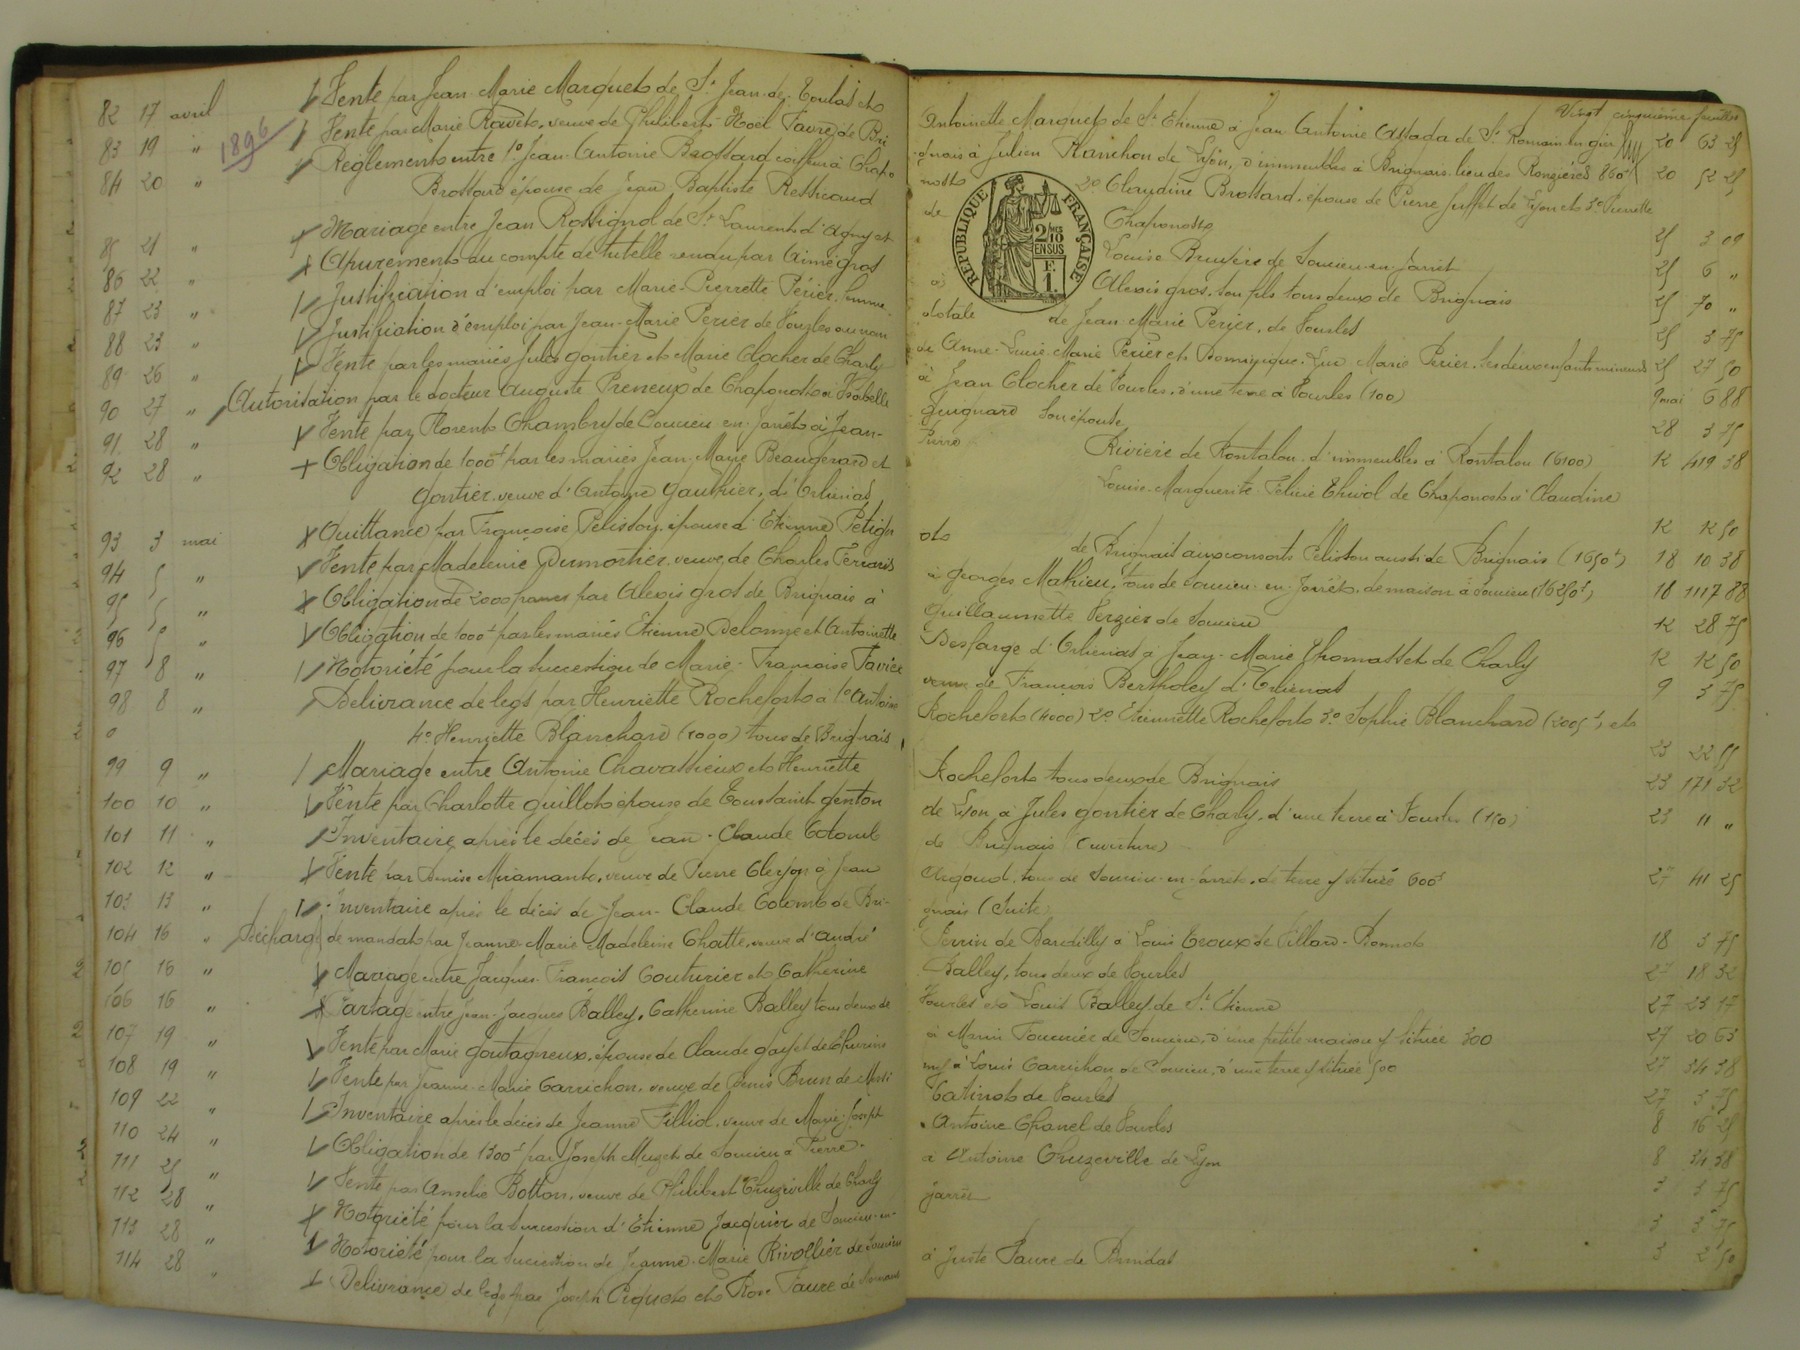 82 17 avril Vente par Jean-Marie Marquet de St Jean-de-Toulas et
1896
83 19 " Vente par Marie Ravet, veuve de Philibert-Noël Favre de Bri
84 20 " Règlement entre 1º Jean-Antoine Brossard coiffeur à Chapo
Brossard épouse de Jean Baptiste
85 21 " Mariage entre Jean Rossignol de St Laurent d'Agny et
86 22 " Apurement du compte de tutelle rendu par Aimé gros
87 23 " Justification d'emploi par Marie-Pierrette Périer, femme
88 23 " Justification d'emploi par Jean-Marie Perier de Vourles au nom
89 26 " Vente par les mariés Jules gontier et Marie Clocher de Charly
90 27 " Autorisation par le docteur Auguste Preneux de Chaponost à Isabelle
91 28 " Vente par Florent Chambry de Soucieu en Jarrêt à Jean-
92 28 " Obligation de 1000f par les mariés Jean-Marie Beaugerard et
gontier, veuve d'Antoine gauthier, d'Orliénas
93 3 mai Quittance par Françoise Pelisson, épouse d'Etienne
94 " Vente par Madeleine Dumortier, veuve de Charles
95 " Obligation de 2000 francs par Alexis gros de Brignais à
96 " Obligation de 1000f par les mariés Etienne Delorme et Antoinette
97 8 " Notoriété pour la succession de Marie-Françoise Favier
98 8 " Délivrance de legs par Henriette Rochefort à 1º Antoine
4º Henriette Blanchard (1000) tous de Brignais
99 9 " Mariage entre Antoine Chavassieux et Henriette
100 10 " Vente par Charlotte guillot épouse de Toussaint genton
101 11 " Inventaire après le décès de Jean-Claude Colomb
102 12 " Vente par Denise Miramant, veuve de Pierre Cleyjon à Jean
103 13 " Inventaire après le décès de Jean-Claude Colomb de Bri-
104 16 " Décharge de mandat par Jeanne-Marie Madeleine Chatte, veuve d'André
105 16 " Mariage entre Jacques-François Couturier et Catherine
106 16 " Partage entre Jean-Jacques Balley, Catherine Balley tous deux de
107 19 " Vente par Marie goutagneux, épouse de Claude gayet de Thurins
108 19 " Vente par Jeanne-Marie Garrichon, veuve de Denis Brun de Messi
109 22 " Inventaire après le décès de Jeanne Filliol, veuve de Marie-Joseph
110 24 " Obligation de 1300f par Joseph Muzet de Soucieu à Pierre
111 25 " Vente par Amélie Botton, veuve de Philibert Chuzeville de Charly
112 28 " Notoriété pour la succession d'Etienne Jacquier de Soucieu-en-
113 28 " Notoriété pour la succession de Jeanne-Marie Rivollier de Soucieu
114 28 " Délivrance de legs par Joseph Piquet et Rose Faure de
Vingt cinquième feuillet
Antoinette Marquet de St Etienne à Jean Antoine Astada de St Romain en gier 20 63 25
gnais à Julien Planchon de Lyon, d'immeubles à Brignais lieu des Ronzières 860f 20 52 25
nost 2º Claudine Brossard, épouse de Pierre de Lyon et 3º Pierrette
de Chaponost 25 3 00
Louise Bruyère de Soucieu-en-Jarret 25 6 "
à Alexis gros, son fils tous deux de Brignais 25 70 "
dotale de Jean-Marie Perier, de Vourles 25 3 75
de Anne-Lucie-Marie Périer et Dominique-Luc Marie Perier, ses deux enfants mineurs 25 27 50
à Jean Clocher de Vourles, d'une terre à Vourles (100) 9 mai 6 88
guignard son épouse 28 3 75
Pierre Rivière de Rontalon, d'immeubles à Rontalon (6100) 12 419 38
Louise-Marguerite-Félicie Thivol de Chaponost à Claudine
REPUBLIQUE FRANÇAISE
2/10 EN SUS
F. 1.
12 12 50
de Brignais aux consorts Pelisson aussi de Brignais (1650f) 18 10 38
à georges Mathieu, tous de Soucieu-en-Jarrêt, de maison à Soucieu (16250f) 18 1117 88
guillaumette Verzier de Soucieu 12 28 75
Desfarge d'Orliénas à Jean-Marie Thomasset de Charly 12 12 50
veuve de François Bertholey d'Orliénas 9 3 75
Rochefort (4000) 2º Etiennette Rochefort 3º Sophie Blanchard (2005f), et
23 22 55
Rochefort tous deux de Brignais 23 171 32
de Lyon à Jules gontier de Charly, d'une terre à Vourles (150) 23 11 "
de Brignais (ouverture)
Argoud, tous de Soucieu-en-Jarrêt, de terre y située 600f 27 41 25
gnais (Suite)
Perrin de Dardilly à Louis de Villars- 18 3 75
Balley, tous deux de Vourles 27 18 32
Vourles et à Louis Balley de St Etienne 27 23 17
à Marin Fournier de Soucieu, d'une petite maison y située 300 27 20 63
my à Louis Garrichon de Soucieu, d'une terre y située 500 27 34 38
Catinot de Vourles 27 3 75
Antoine Chanel de Vourles 8 16 25
à Antoine Chuzeville de Lyon 8 34 38
Jarrêt 3 3 75
3 3 75
à Juste Faure de Brindas 3 2 50